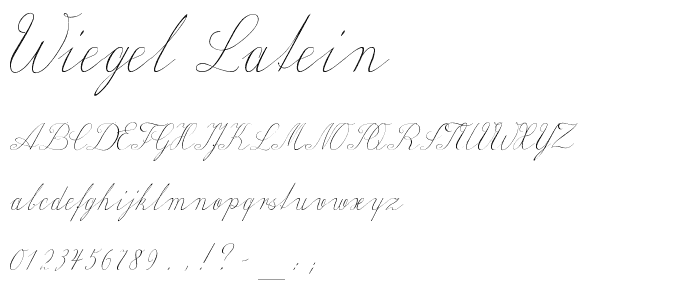 Wiegel Latein
ABCDEFGHIJKLMNOPQRSTUVWXYZ
abcdefghijklmnopqrstuvwxyz
0123456789 . , ! ? - _ : ;